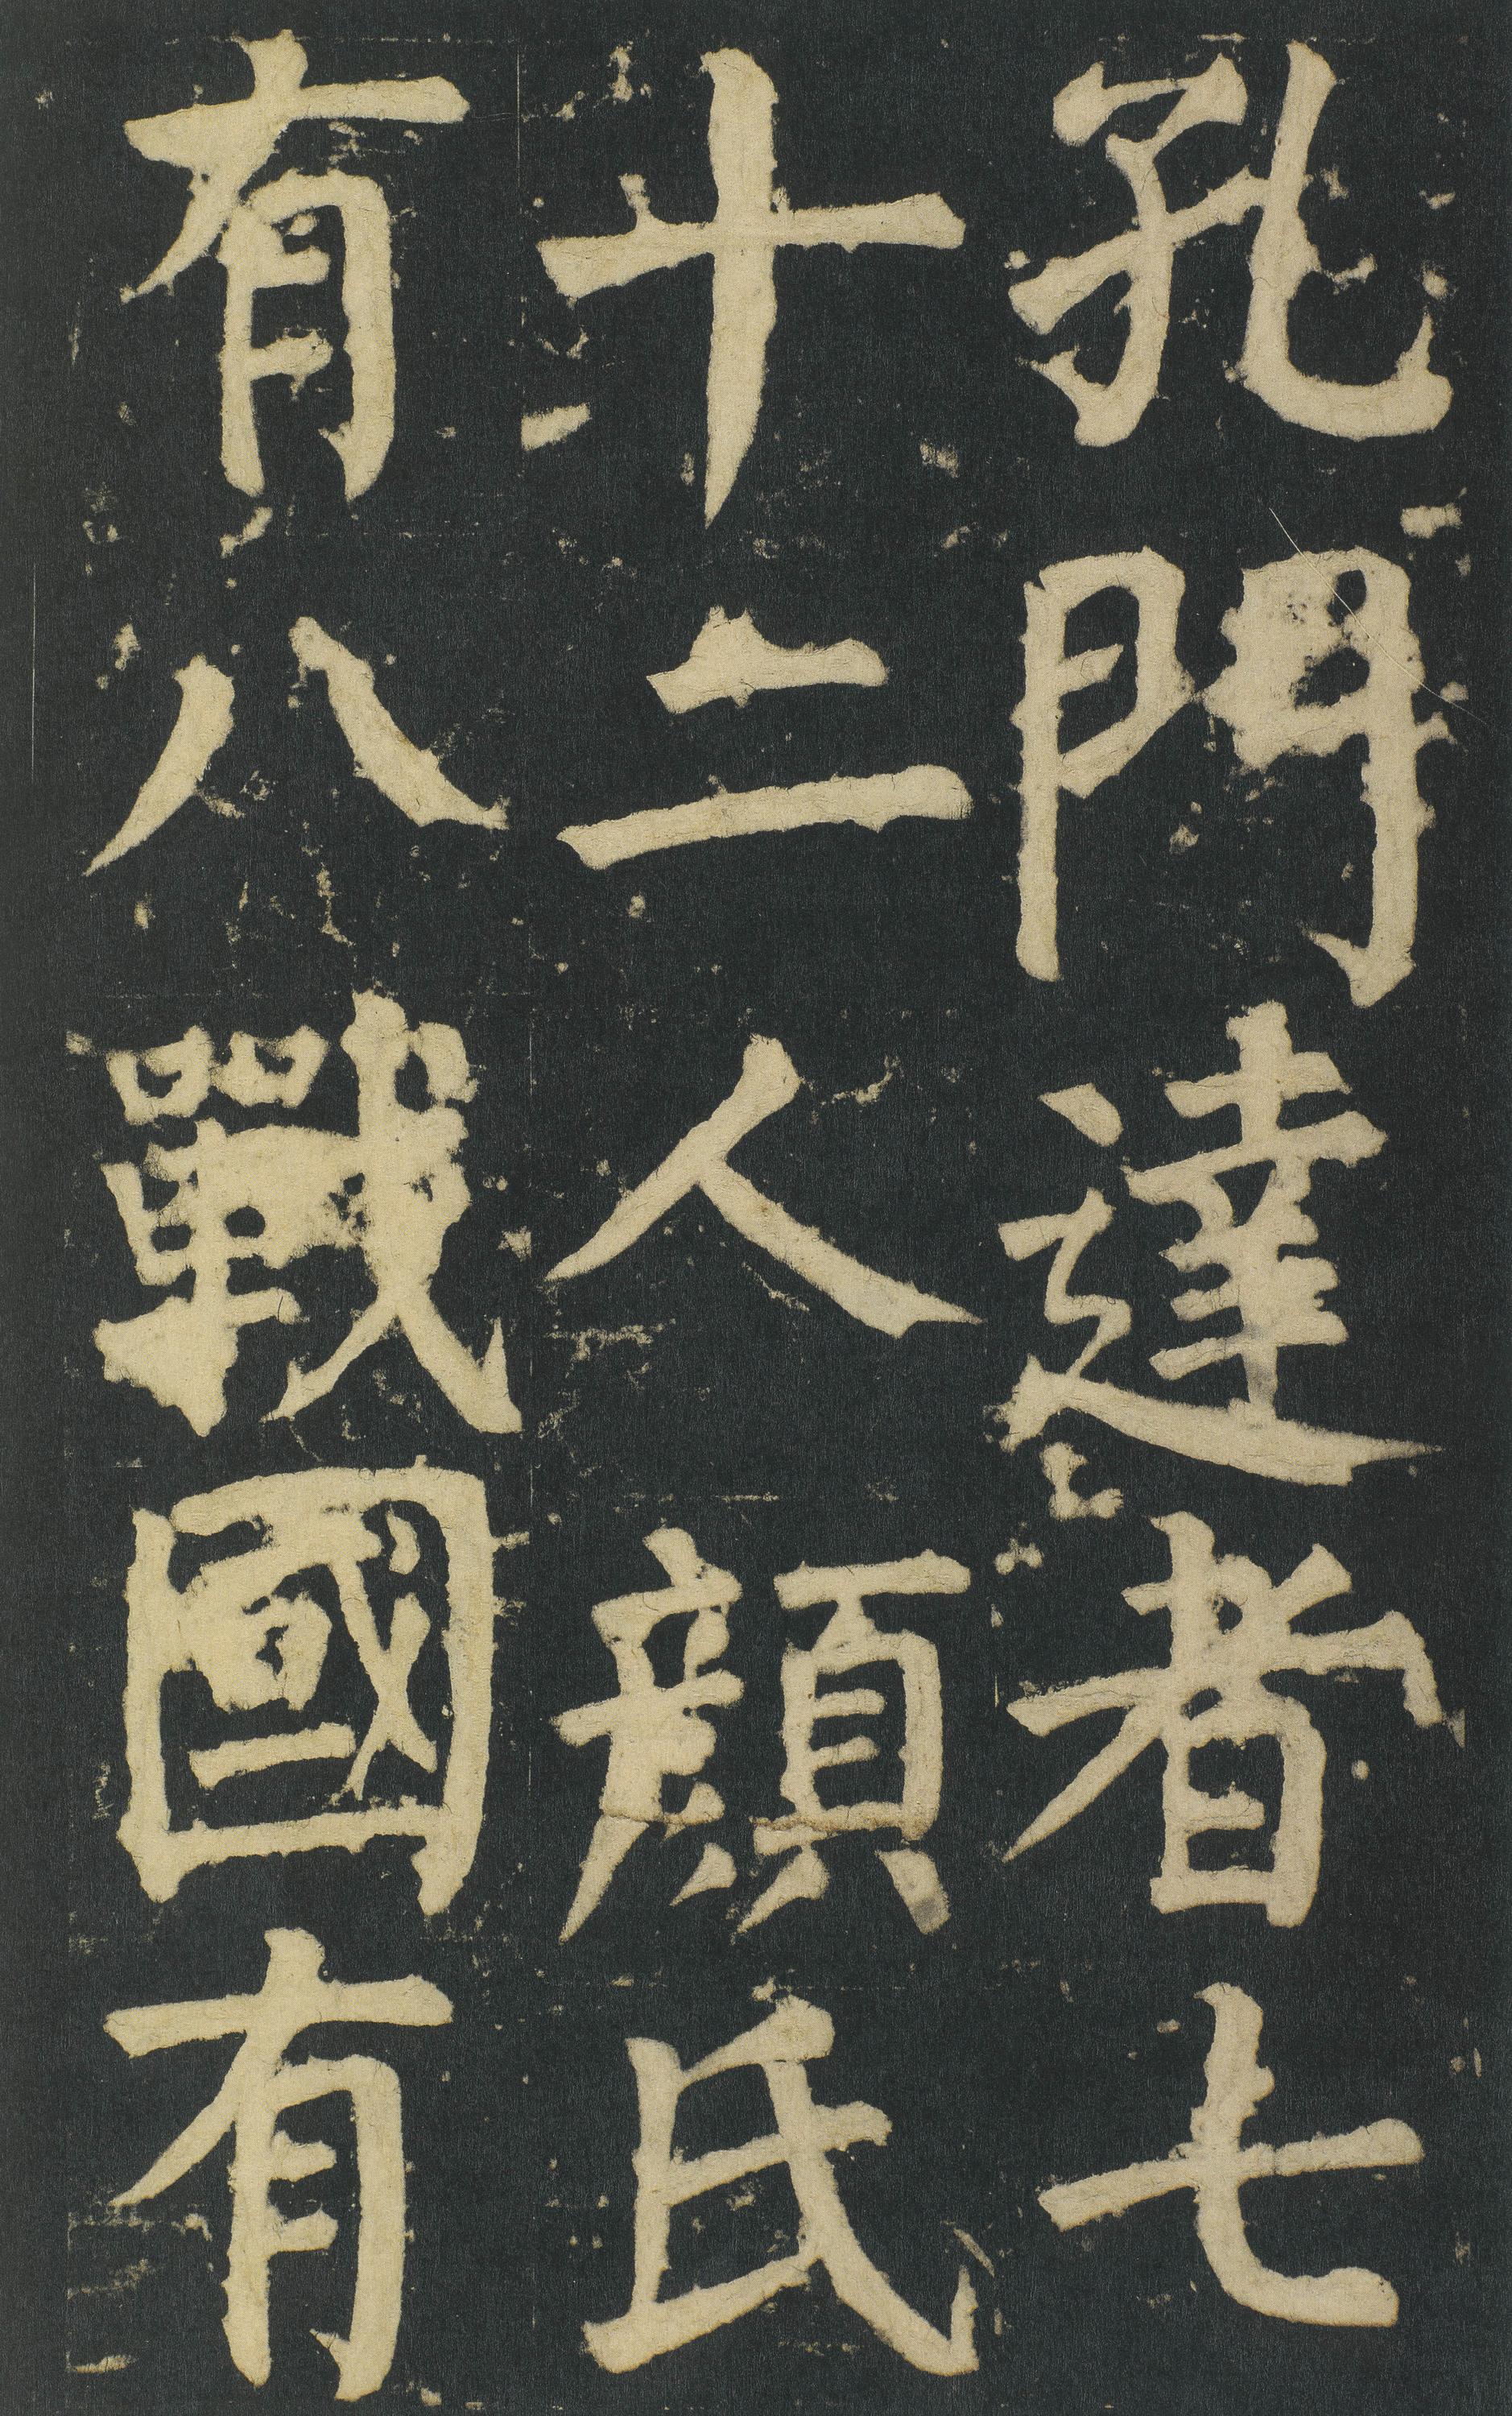 孔門達者七
十二人顔氏
有八戰國有